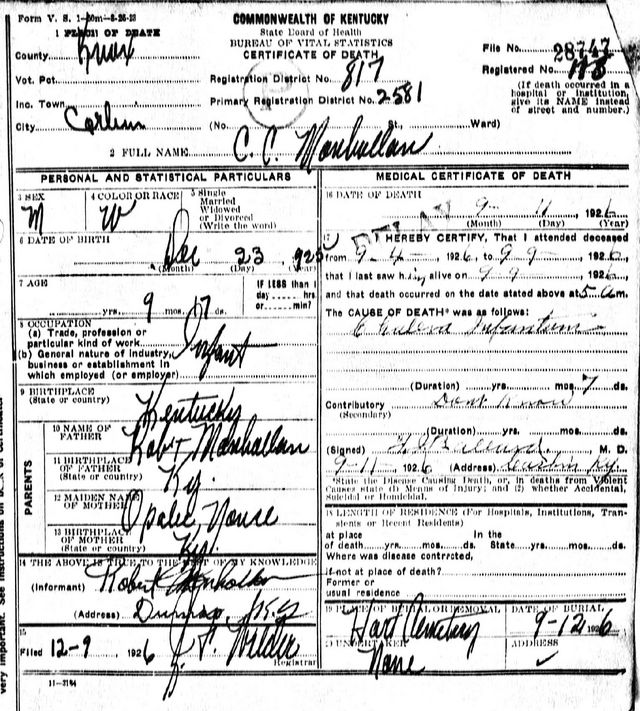 Form V. S. 1-50m-8-26-23
COMMONWEALTH OF KENTUCKY
State Board of Health
BUREAU OF VITAL STATISTICS
CERTIFICATE OF DEATH
1 PLACE OF DEATH
County Knox
File No. 28747
Registered No.
(If death occurred in a hospital or institution, give its NAME instead of street and number.)
Vot. Pct.
Registration District No. 817
Inc. Town
Primary Registration District No. 2581
City Corbin (No. St., Ward)
2 FULL NAME C. C. Manhollan
PERSONAL AND STATISTICAL PARTICULARS
3 SEX M
4 COLOR OR RACE W
5 Single
Married
Widowed
or Divorced
(Write the word)
6 DATE OF BIRTH
Dec 23 1925
(Month) (Day) (Year)
7 AGE
yrs. 9 mos. 17 ds.
IF LESS than 1
day hrs
or min?
8 OCCUPATION
(a) Trade, profession or
particular kind of work
Infant
(b) General nature of industry,
business or establishment in
which employed (or employer)
9 BIRTHPLACE
(State or country)
Kentucky
PARENTS
10 NAME OF
FATHER
Manhollan
11 BIRTHPLACE
OF FATHER
(State or country)
Ky.
12 MAIDEN NAME
OF MOTHER
13 BIRTHPLACE
OF MOTHER
(State or country)
Ky.
14 THE ABOVE IS TRUE TO THE BEST OF MY KNOWLEDGE
(Informant) Robert
(Address) Ky
15
Filed 12-9 1926 Wilder
Registrar
11-3184
MEDICAL CERTIFICATE OF DEATH
16 DATE OF DEATH
9 11 1926
(Month) (Day) (Year)
DELAY
17 I HEREBY CERTIFY, That I attended deceased
from 9-4- 1926, to 9 9- 1926,
that I last saw him alive on 9 9 1926
and that death occurred on the date stated above at 5 a.m.
The CAUSE OF DEATH* was as follows:
Cholera Infantum
(Duration) yrs. mos. 7 ds.
Contributory Dont Know
(Secondary)
(Duration) yrs. mos. ds.
(Signed) Ballard M. D.
9-11- 1926 (Address) Corbin Ky
*State the Disease Causing Death, or, in deaths from Violent
Causes state (1) Means of Injury; and (2) whether Accidental,
Suicidal or Homicidal.
18 LENGTH OF RESIDENCE (For Hospitals, Institutions, Transients or Recent Residents)
at place In the
of death yrs. mos. ds. State yrs. mos. ds.
Where was disease contracted,
if not at place of death?
Former or
usual residence
19 PLACE OF BURIAL OR REMOVAL
Hart Cemetery
DATE OF BURIAL
9-12 1926
20 UNDERTAKER
None
ADDRESS